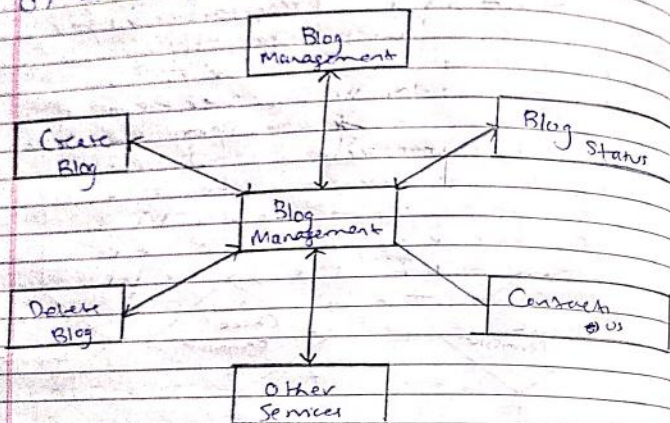 Blog
Management
Create
Blog
Blog
Status
Blog
Management
Delete
Blog
Contact
us
Other
Services